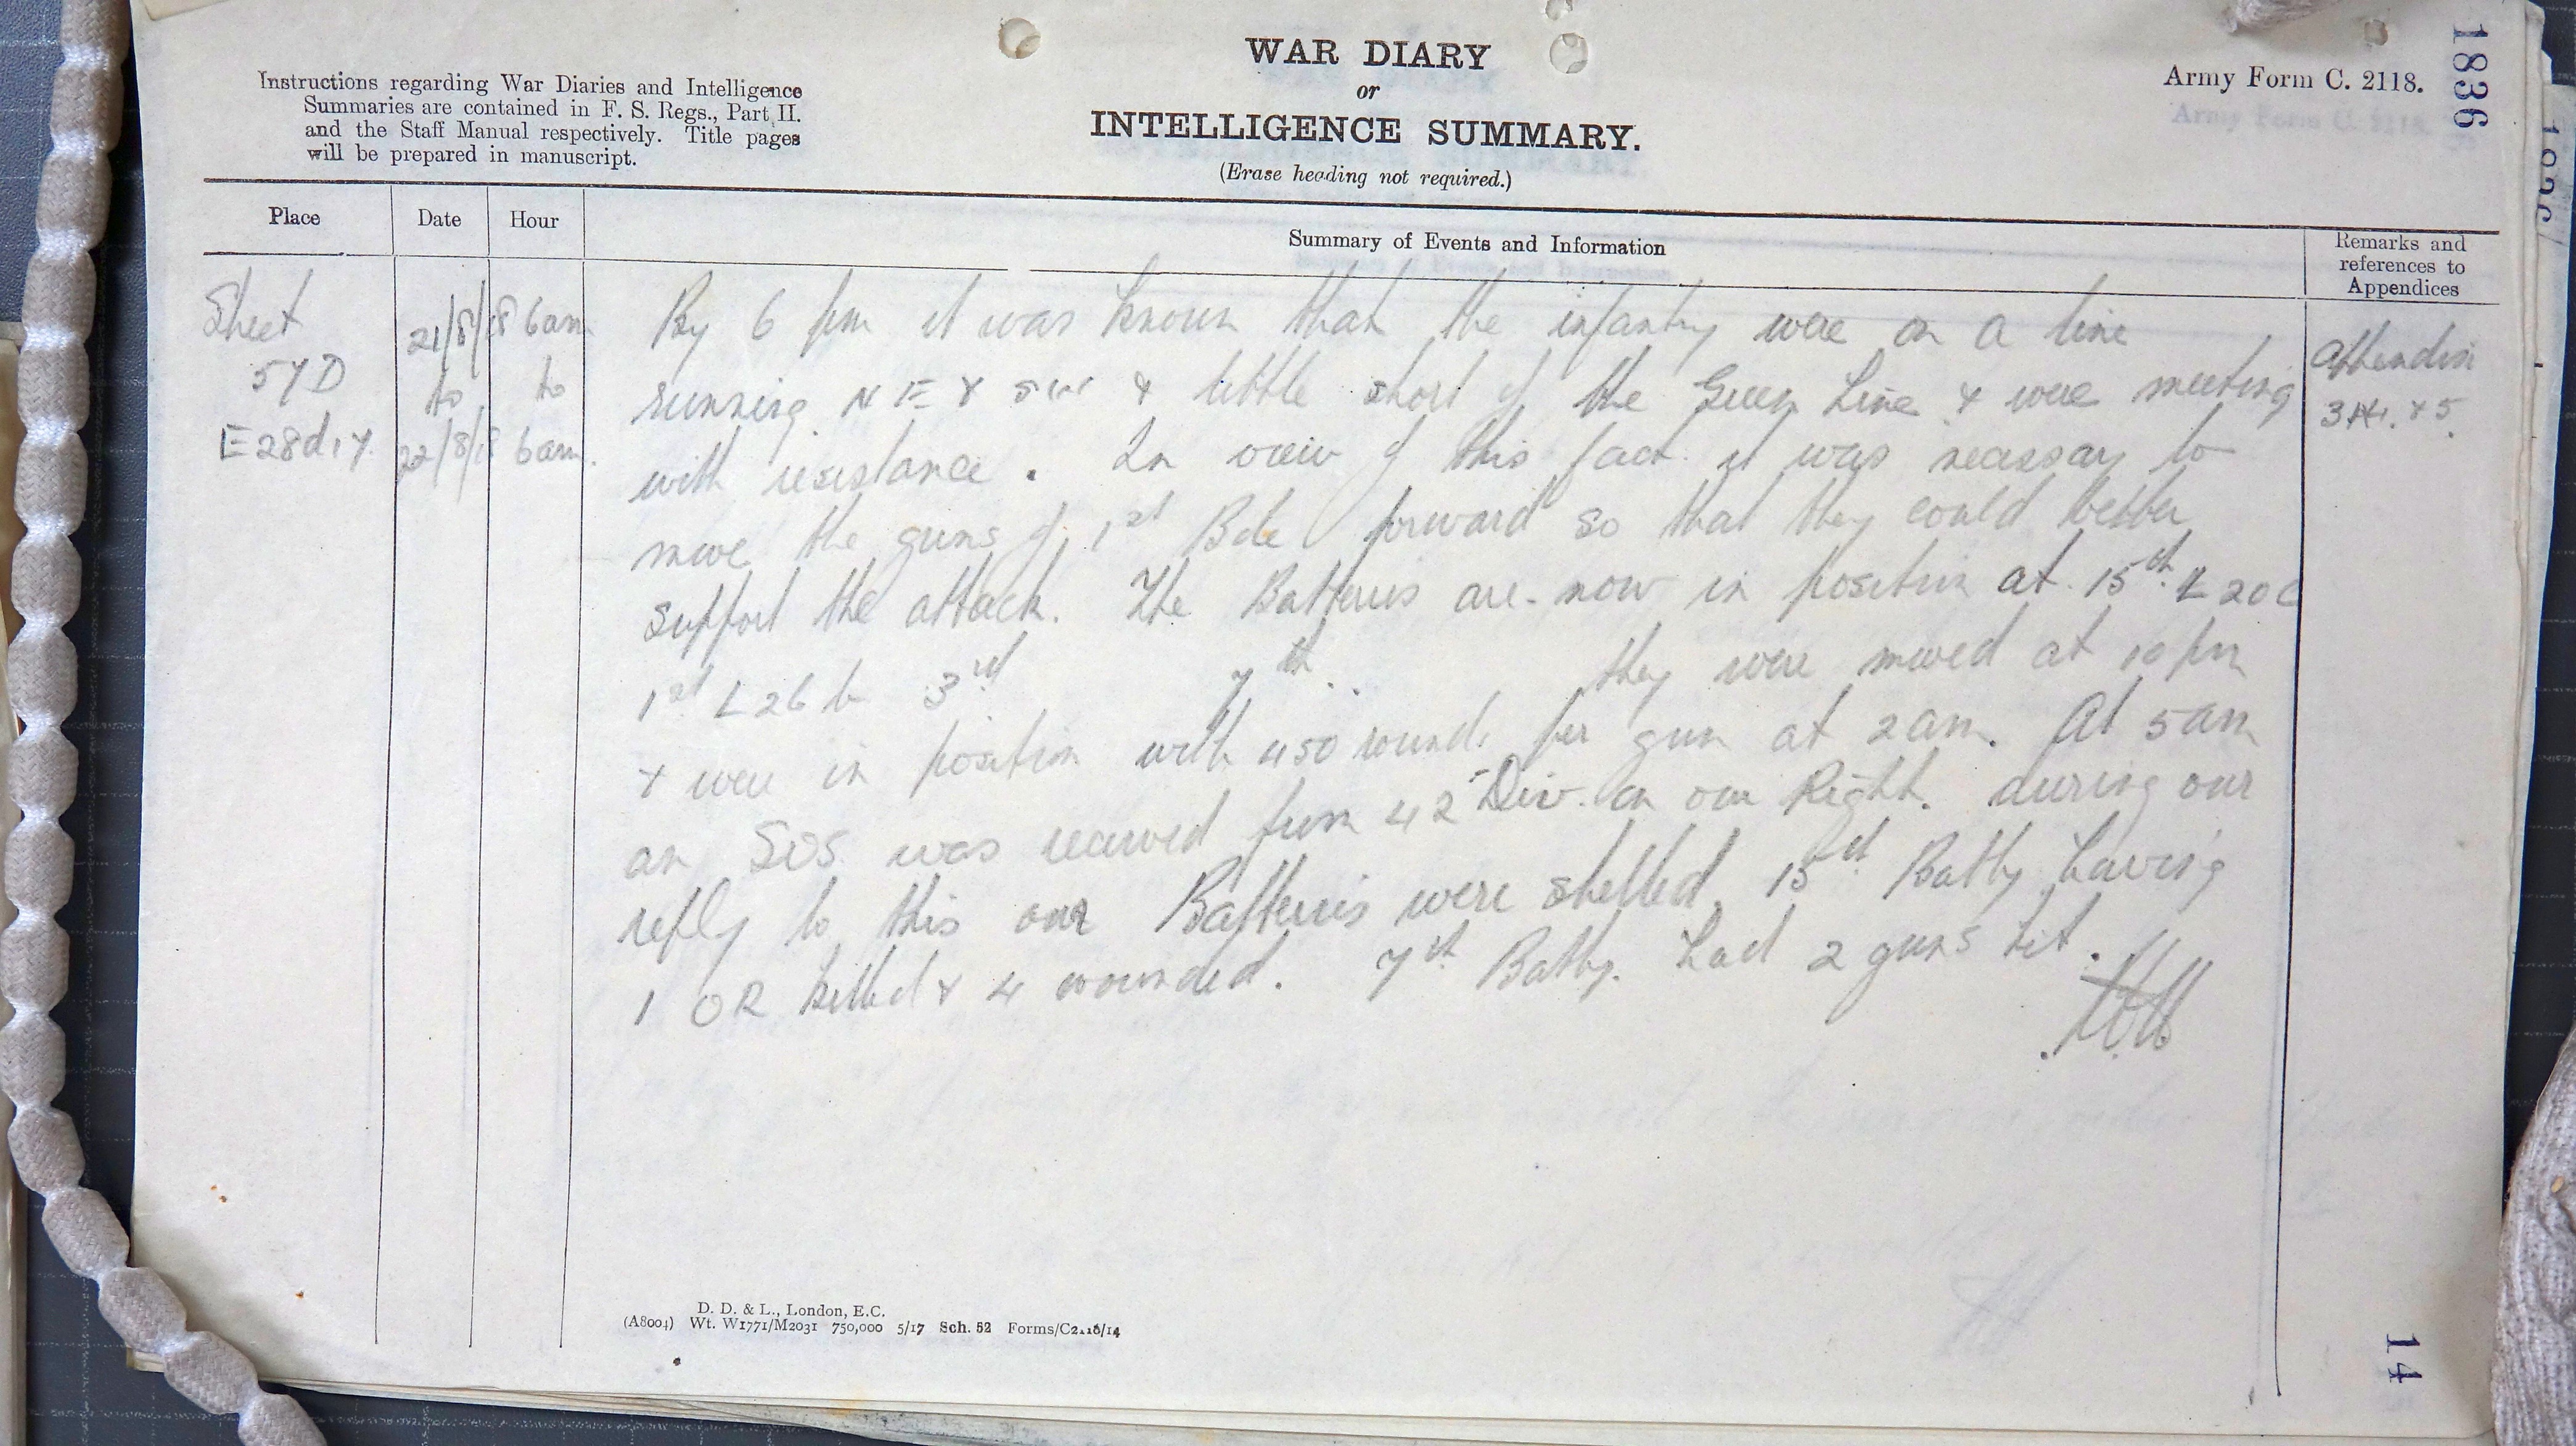 WAR DIARY
or
INTELLIGENCE SUMMARY.
(Erase heading not required.)
Instructions regarding War Diaries and Intelligence
Summaries are contained in F. S. Regs., Part II.
and the Staff Manual respectively. Title pages
will be prepared in manuscript.
Army Form C. 2118.
1836
Place
Date
Hour
Summary of Events and Information
Remarks and
references to
Appendices
Sheet
57D
E28d17
21/8/18
to
22/8/18
6am
to
6am.
By 6 pm it was known that the infantry were on a line
running NE & SW & little short of the Green Line & were meeting
with resistance. In view of this fact it was necessay to
move the guns of 1st Bde forward so that they could better
support the attack. The Batteries are now in position at 15th L20c
1st L26b 3rd 7th .. they were moved at 10 pm
& were in position with 450 rounds per gun at 2am. At 5am
an SOS was received from 42 Div. on our Right. during our
reply to this our Batteries were shelled, 15th Batty having
1 OR killed & 4 wounded. 7th Batty. had 2 guns hit.
Appendix
3 & 5
D. D. & L., London, E.C.
(A8004) Wt. W1771/M2031 750,000 5/17 Sch. 52 Forms/C2118/14
14